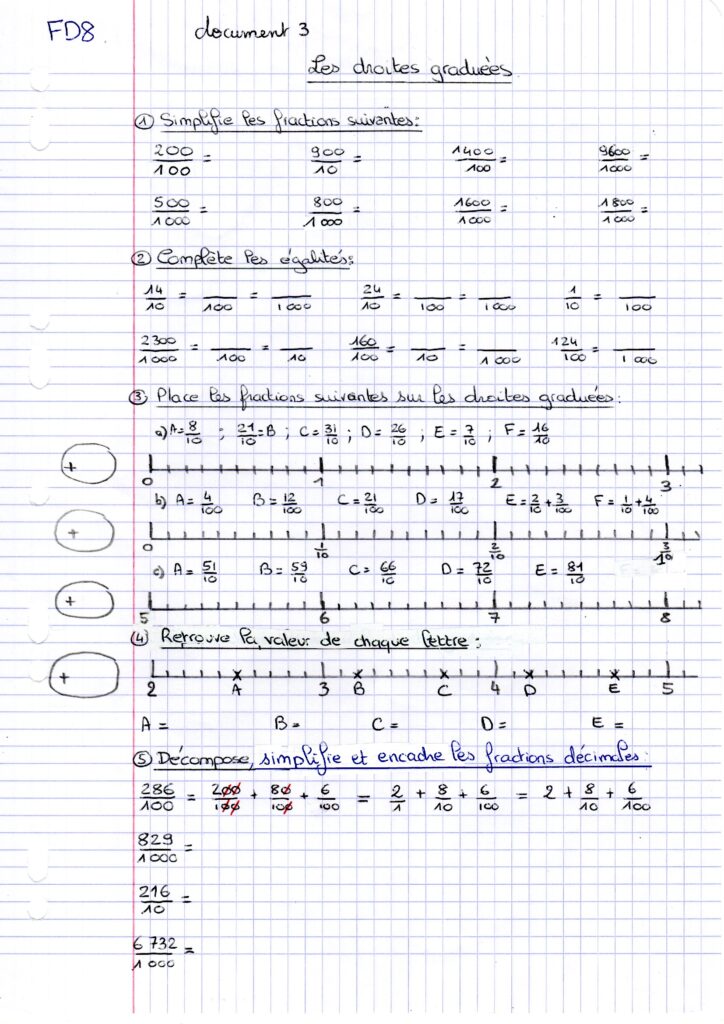 FD8 document 3
Les droites graduées
① Simplifie les fractions suivantes:
200/100 = 900/10 = 1400/100 = 9600/1000 =
500/1000 = 800/1000 = 1600/1000 = 1800/1000 =
② Complète les égalités:
14/10 = __/100 = __/1000 24/10 = __/100 = __/1000 1/10 = __/100
2300/1000 = __/100 = __/10 160/100 = __/10 = __/1000 124/100 = __/1000
③ Place les fractions suivantes sur les droites graduées:
a) A=8/10 ; 21/10=B ; C=31/10 ; D=26/10 ; E=7/10 ; F=16/10
+
0 1 2 3
b) A=4/100 B=12/100 C=21/100 D=17/100 E=2/10+3/100 F=1/10+4/100
+
0 1/10 2/10 3/10
c) A=51/10 B=59/10 C=66/10 D=72/10 E=81/10
+
5 6 7 8
④ Retrouve la valeur de chaque lettre:
+
2 A 3 B C 4 D E 5
A = B = C = D = E =
⑤ Décompose, simplifie et encadre les fractions décimales:
286/100 = 200/100 + 80/100 + 6/100 = 2/1 + 8/10 + 6/100 = 2 + 8/10 + 6/100
829/1000 =
216/10 =
6 732/1000 =